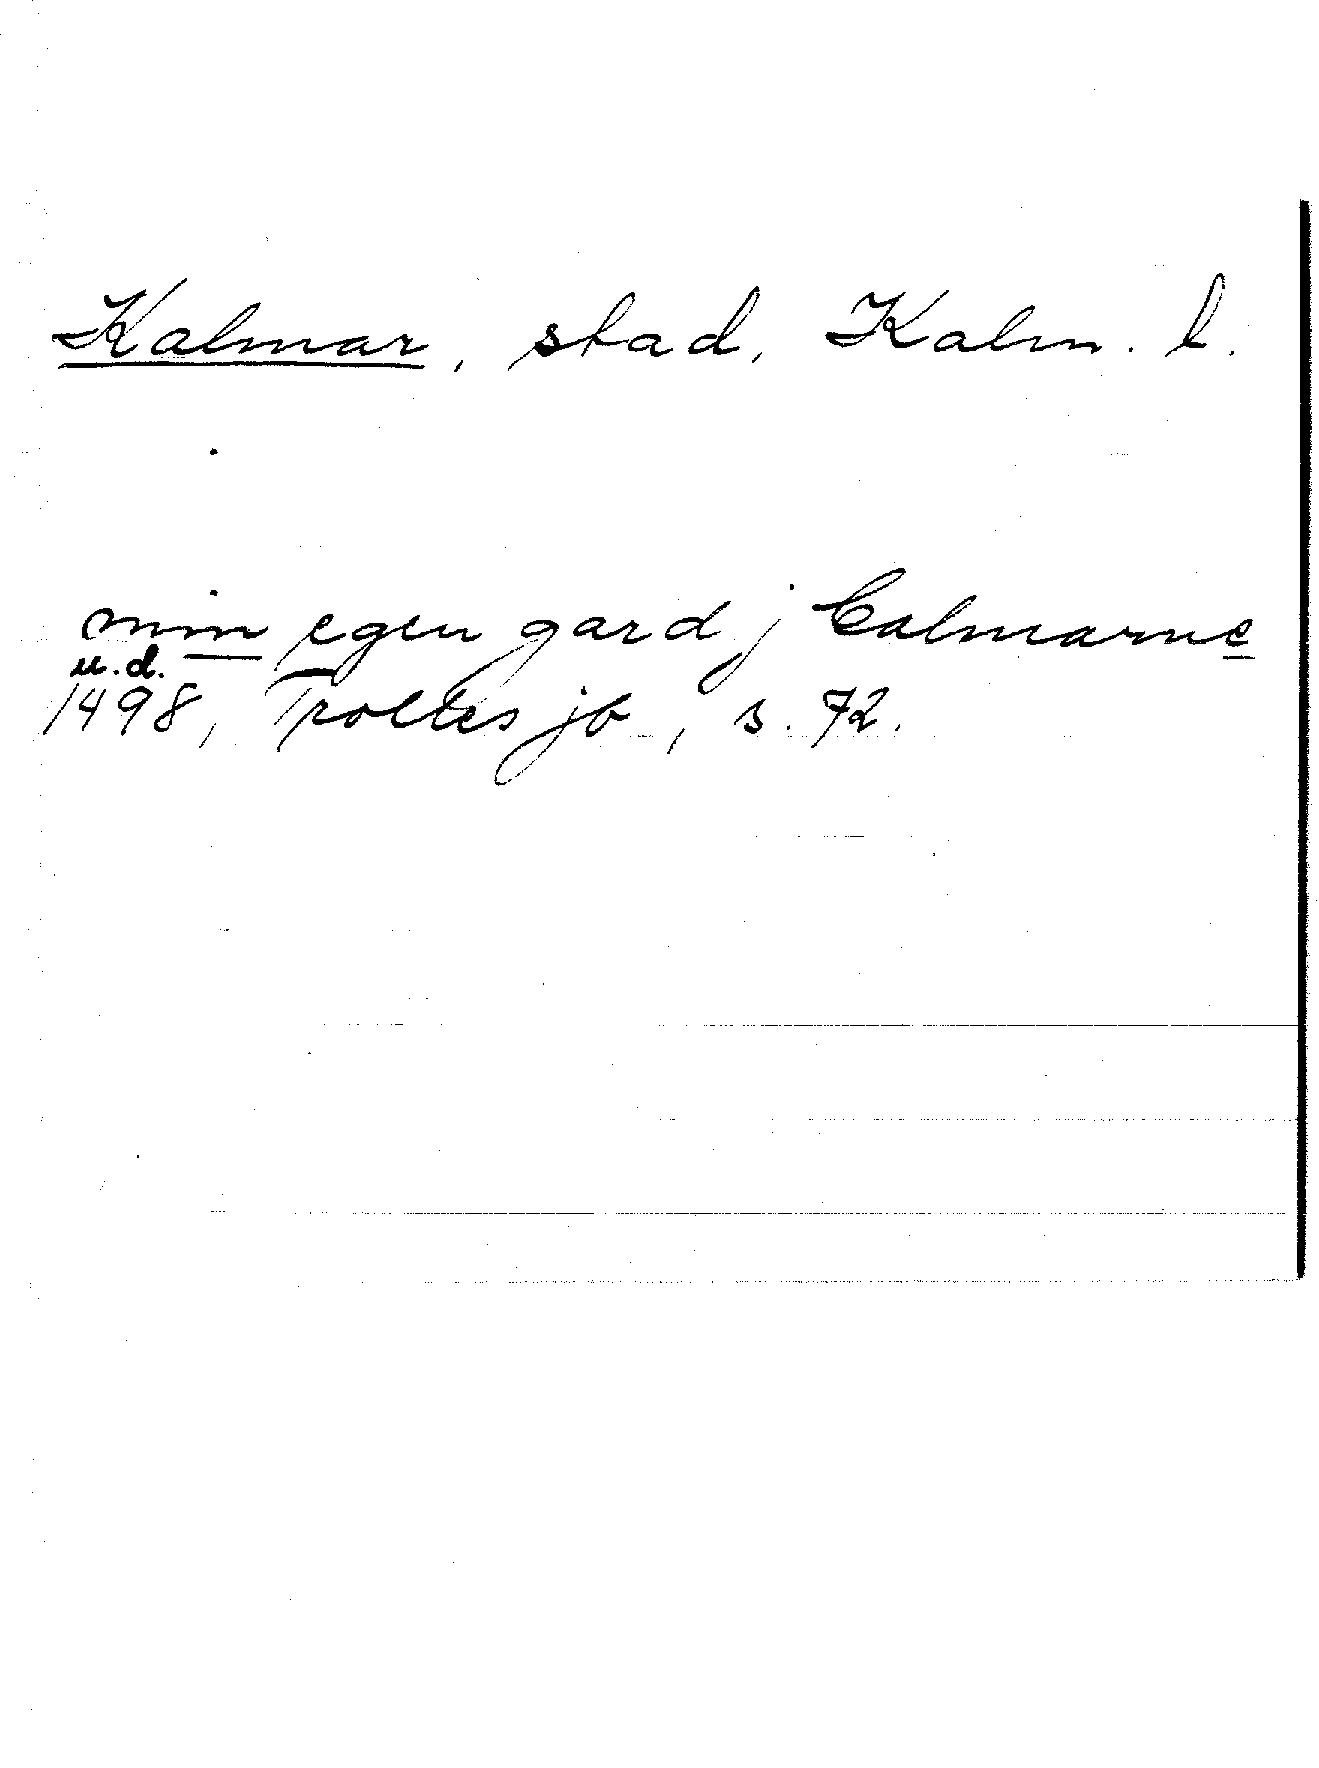 Kalmar, stad, Kalm. l.
min egen gard j Calmarne
u.d.
1498, Trolles jb, s. 72.